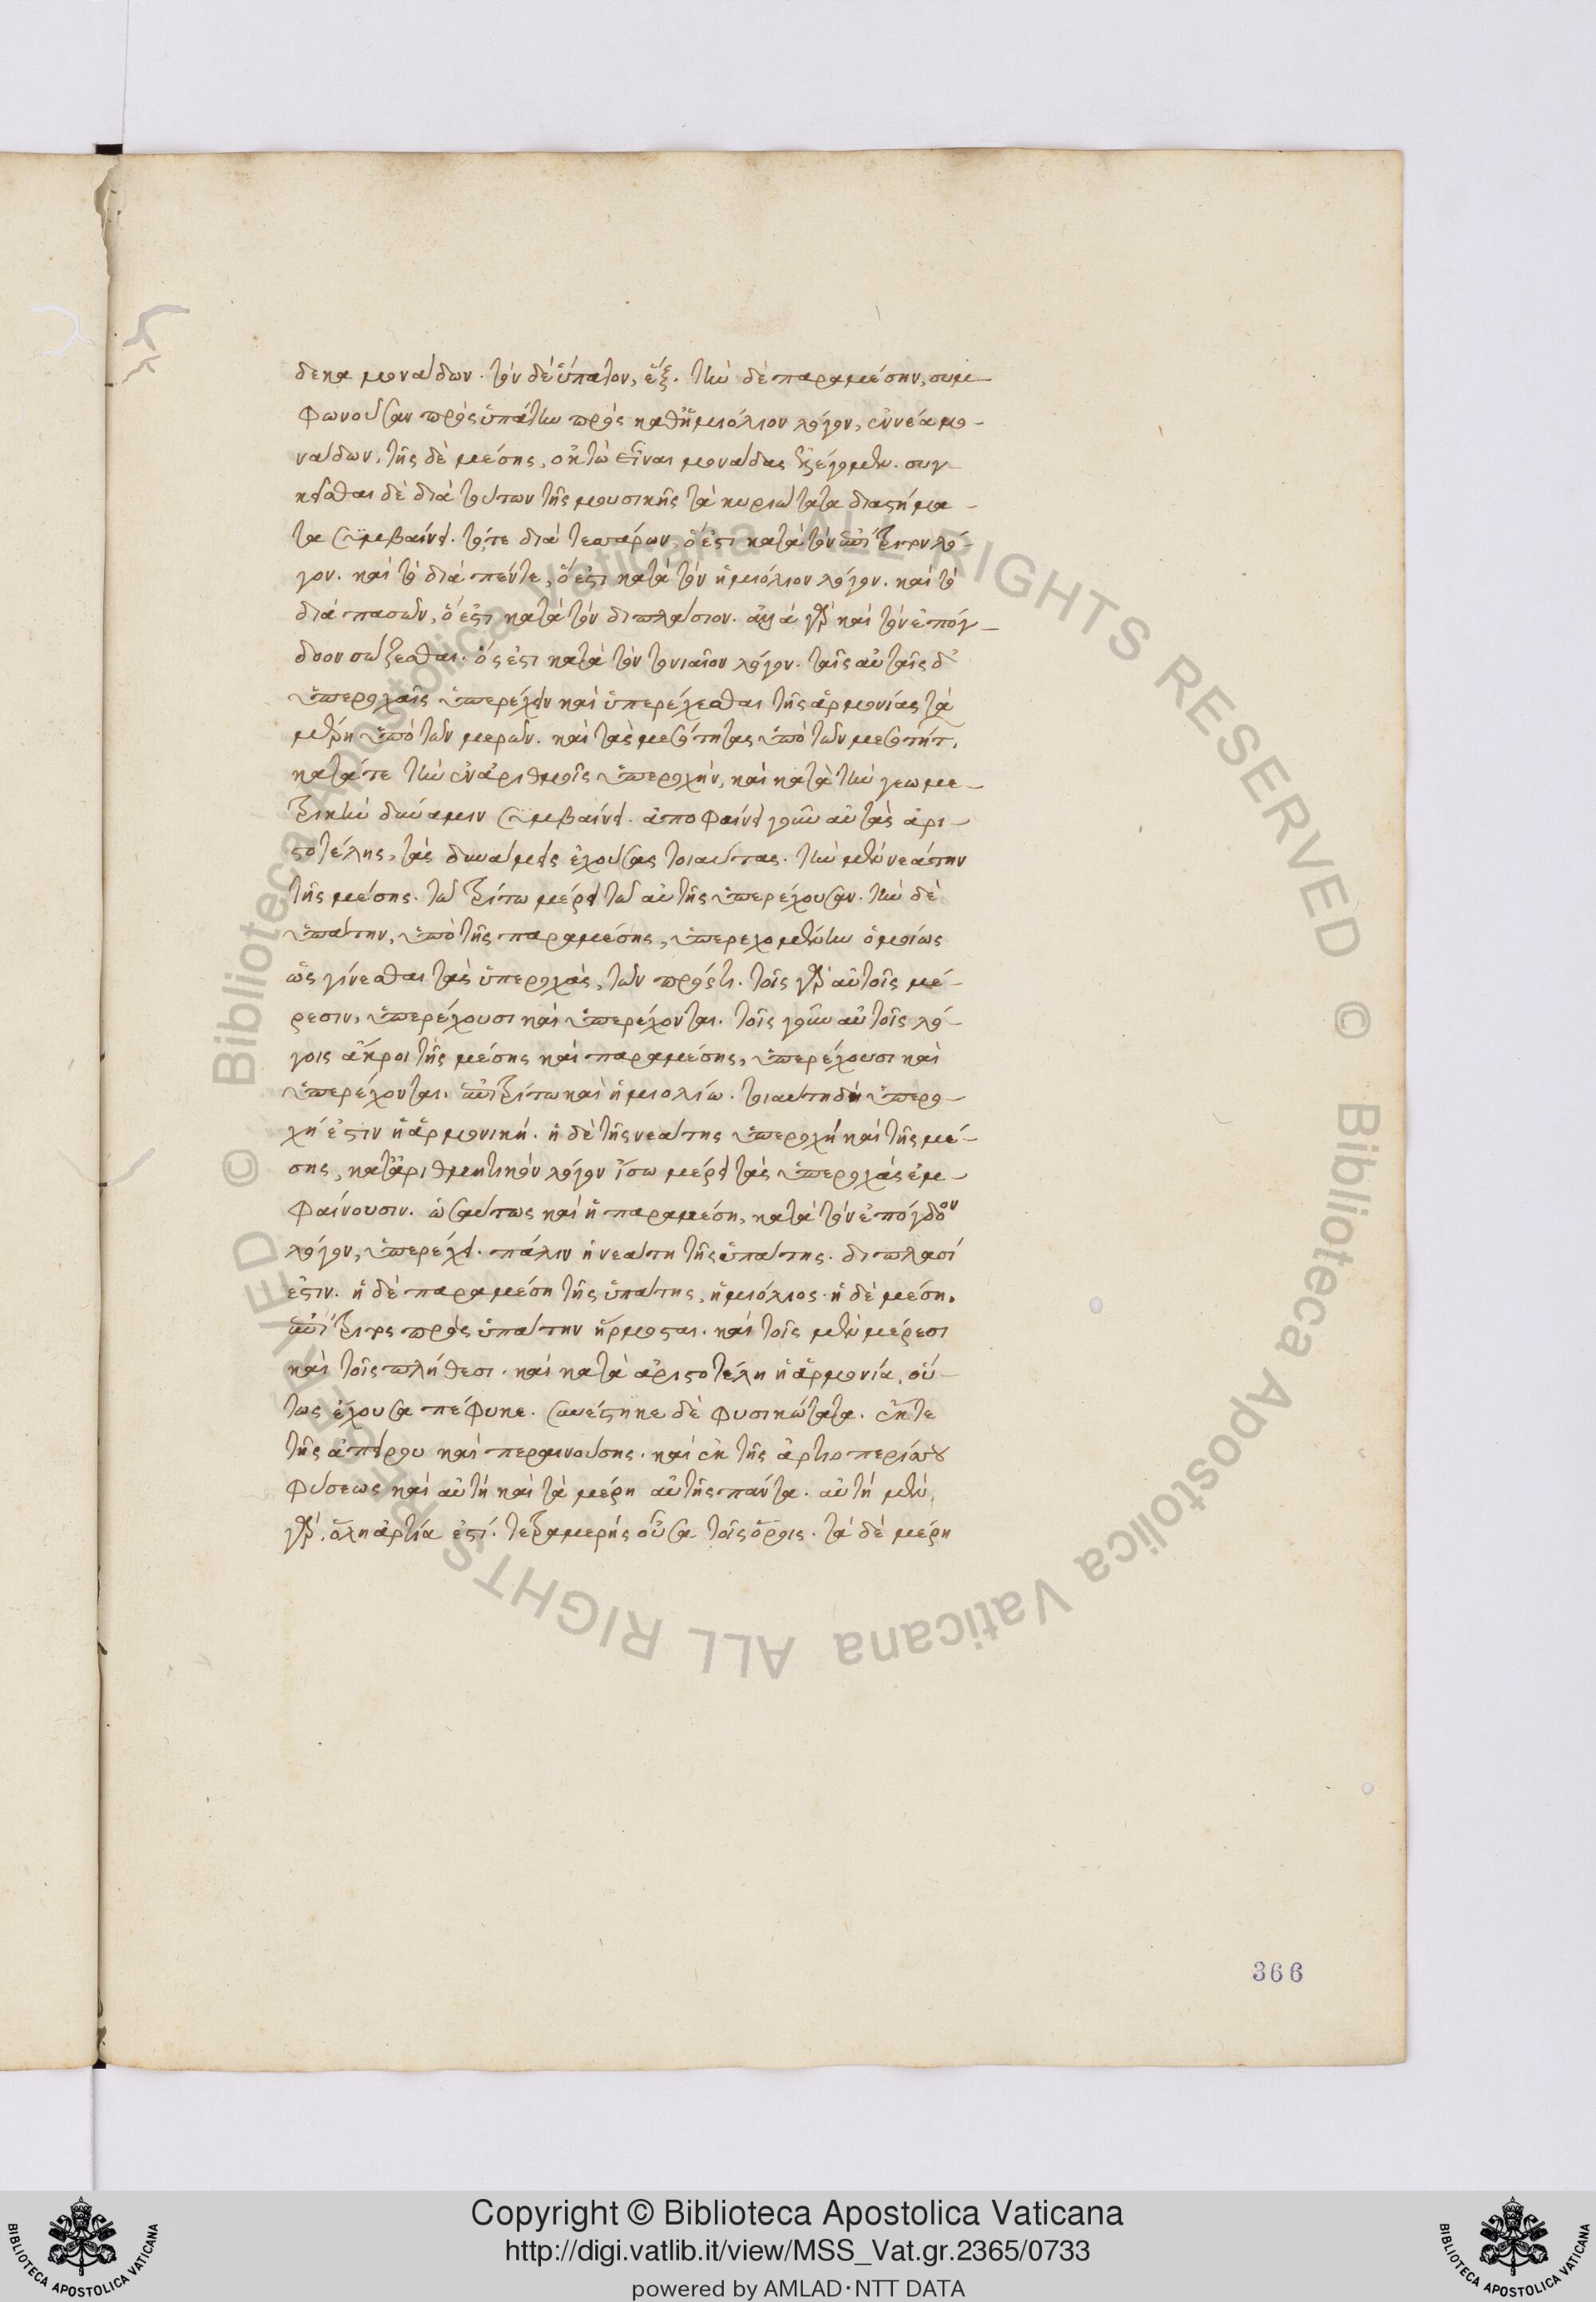 δεκα μονάδων. τὸν δὲ ὕπατον, ἕξ. τὴν δὲ παραμέσην, συμ-
φωνοῦσαν πρὸς ὑπάτην πρὸς καθ' ἡμιόλιον λόγον, ἐννέα μο-
νάδων. τῆς δὲ μέσης, ὀκτὼ εἶναι μονάδας ἐλέγομεν. συγ-
κεῖσθαι δὲ διὰ τούτων τῆς μουσικῆς τὰ κυριώτατα διαστήμα-
τα συμβαίνει. τό, τε διὰ τεσσάρων, ὅ ἐστι κατὰ τὸν ἐπίτριτον λό-
γον. καὶ τὸ διὰ πέντε, ὅ ἐστι κατὰ τὸν ἡμιόλιον λόγον. καὶ τὸ
διὰ πασῶν, ὅ ἐστι κατὰ τὸν διπλάσιον. ἀλλὰ γὰρ καὶ τὸν ἐπόγ-
δοον σώζεσθαι. ὅς ἐστι κατὰ τὸν τονιαῖον λόγον. ταῖς αὐταῖς δ'
ὑπεροχαῖς ὑπερέχειν καὶ ὑπερέχεσθαι τῆς ἁρμονίας τὰ
μέρη ὑπὸ τῶν μερῶν. καὶ τὰς μεσότητας ὑπὸ τῶν μεσοτήτ.
κατά τε τὴν ἐν ἀριθμοῖς ὑπεροχήν, καὶ κατὰ τὴν γεωμε-
τρικὴν δύναμιν συμβαίνει. ἀποφαίνει γοῦν αὐτὰς ἀρι-
στοτέλης, τὰς δυνάμεις ἐχούσας τοιαύτας. τὴν μὲν νεάτην
τῆς μέσης. τῷ τρίτῳ μέρει τῷ αὐτῆς ὑπερέχουσαν. τὴν δὲ
ὑπάτην, ὑπὸ τῆς παραμέσης, ὑπερεχομένην ὁμοίως
ὡς γίνεσθαι τὰς ὑπεροχάς, τῶν πρός τι. τοῖς γὰρ αὐτοῖς μέ-
ρεσιν, ὑπερέχουσι καὶ ὑπερέχονται. τοῖς γοῦν αὐτοῖς λό-
γοις ἄκροι τῆς μέσης καὶ παραμέσης, ὑπερέχουσι καὶ
ὑπερέχονται. ἐπιτρίτῳ καὶ ἡμιολίῳ. τοιαύτη δὴ ὑπερο-
χή ἐστιν ἡ ἁρμονική. ἡ δὲ τῆς νεάτης ὑπεροχὴ καὶ τῆς μέ-
σης, κατ' ἀριθμητικὸν λόγον ἴσῳ μέρει τὰς ὑπεροχὰς ἐμ-
φαίνουσιν. ὡσαύτως καὶ ἡ παραμέση, κατὰ τὸν ἐπόγδοον
λόγον, ὑπερέχει. πάλιν ἡ νεάτη τῆς ὑπάτης. διπλασί
ἐστιν. ἡ δὲ παραμέση τῆς ὑπάτης, ἡμιόλιος. ἡ δὲ μέση.
ἐπίτριτος πρὸς ὑπάτην ἥρμοσται. καὶ τοῖς μὲν μέρεσι
καὶ τοῖς πλήθεσι. καὶ κατὰ ἀριστοτέλη ἡ ἁρμονία, οὕ-
τως ἔχουσα πέφυκε. συνέστηκε δὲ φυσικώτατα. ἔκ τε
τῆς ἀπείρου καὶ περαινούσης. καὶ ἐκ τῆς ἀρτιοπερίσσου
φύσεως καὶ αὐτὴ καὶ τὰ μέρη αὐτῆς πάντα. αὐτὴ μὲν
γὰρ, ὅλη ἀρτία ἐστί. τετραμερὴς οὖσα τοῖς ὅροις. τὰ δὲ μέρη
366
© Biblioteca Apostolica Vaticana ALL RIGHTS RESERVED © Biblioteca Apostolica Vaticana ALL RIGHTS RESERVED
Copyright © Biblioteca Apostolica Vaticana
http://digi.vatlib.it/view/MSS_Vat.gr.2365/0733
powered by AMLAD·NTT DATA
BIBLIOTECA APOSTOLICA VATICANA
BIBLIOTECA APOSTOLICA VATICANA